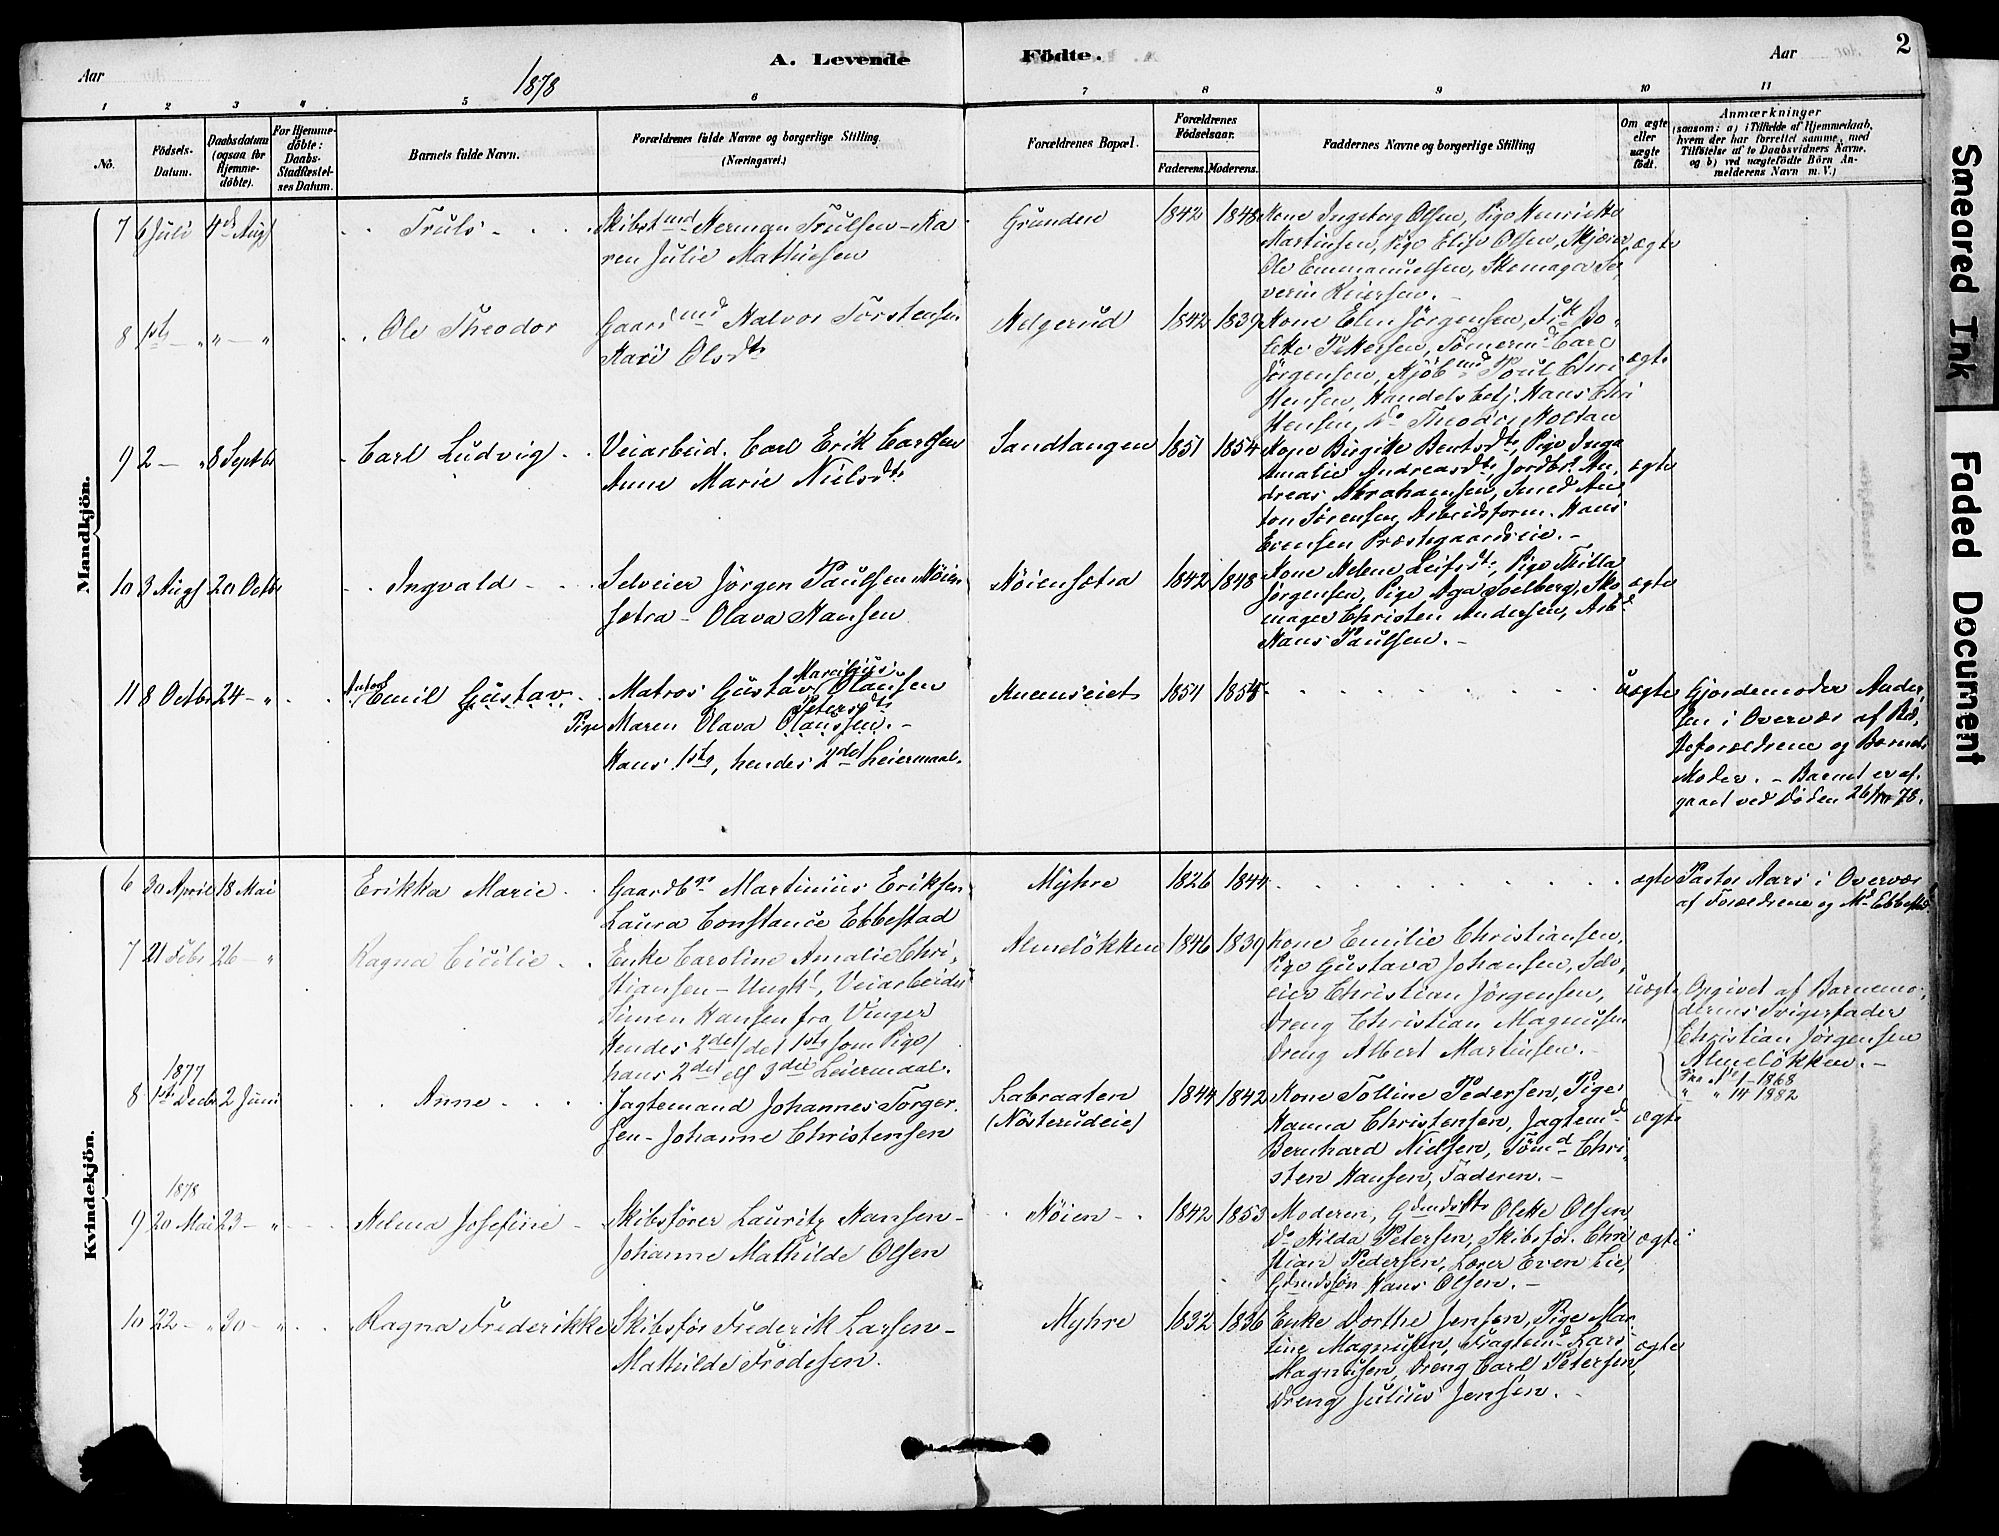 Aar
1878
A. Levende Födte.
Aar
2
1 2 3 4 5 6 7 8 9 10 11
No.
Födsels-
Datum.
Daabsdatum
(ogsaa for
Hjemme-
döbte).
For Hjemme-
döbte:
Daabs-
Stadfæstel-
ses Datum.
Barnets fulde Navn.
Forældrenes fulde Navne og borgerlige Stilling
(Næringsvei.)
Forældrenes Bopæl.
Forældrenes
Födselsaar.
Faderens. Moderens.
Faddernes Navne og borgerlige Stilling
Om ægte
eller
uægte
født.
Anmærkninger
(saasom: a) i Tilfælde af Hjemmedaab,
hvem der har forrettet samme, med
Tilföielse af to Daabsvidners Navne,
og b) ved uægtefödte Börn An-
melderens Navn m. V.)
Mandkjön.
7 6 Juli 4de Aug Truls
Skibstmd Herman Trulsen - Ka
ren Julie Mathiesen
Grunden 1842 1848
Kone Ingeborg Olsen, Pige Henrikke
Martinsen, Pige Elise Olsen, Skjærer
Ole Emmanuelsen, Skomager Se
verin Reiersen. -
ægte
8 1ste - " " - " Ole Theodor
Gaardmd Halvor Torstensen
Kari Olsdtr
Helgerud 1842 1839
Kone Elen Jörgensen, Frk Bo
lette Pettersen, Tömermd Carl
Jörgensen, Kjöbmd Poul Chri
stensen, Handelsbetj. Hans Chri
stensen, Do Theodor Holtan
ægte
9 2 - " 8 Septbr Carl Ludvig
Veiarbeid. Carl Erik Carlsen
Anne Marie Nielsdtr
Sandtangen 1851 1854
Kone Birgitte Berntsdtr, Pige Inga
Amalie Andreasdtr, Jordbr. An
dreas Abrahamsen, Smed An
ton Sörensen, Arbeidsform. Hans
Evensen Præstegaardseie. -
ægte
10 3 Augs 20 Octbr Ingvald
Selveier Jörgen Paulsen Nöien
setra - Olava Hansen
Nöiensætra 1842 1848
Kone Helene Leifsdtr, Pige Milla
Jörgensen, Pige Aga Solberg, Sko
mager Christen Andersen, Arbd
Hans Paulsen. -
ægte
11 8 Octbr 24 - " Anton Emil Gustav
Marelius
Matros Gustav Olausen
Petersdtr
Pige Maren Olava Olaussen. -
Hans 1ste, hendes 2det Leiermaal.
Knemseiet 1851 1855
uægte
Gjordemoder Ander
sen i Overvær af Bed
steforældrene og Barnets
Moder. - Barnet er af
gaaet ved Döden 26/10 78.
Kvindekjön.
6 30 April 18 Mai Erikka Marie
Gaardbr Martinius Eriksen
Laura Constance Ebbestad
Myhre 1826 1844
ægte
Pastor Aars i Overvær
af Forældrene og Md Ebbestad
7 21 Febr 26 - " Ragna Cicilie
Enke Caroline Amalie Chri
stiansen - Ungk., Veiarbeider
Simen Hansen fra Vinger
Hendes 2det (det 1ste som Pige)
hans 2det ell 3die Leiermaal.
Almelökken 1846 1839
Kone Emilie Christiansen,
Pige Gustava Johansen, Selv
eier Christian Jörgensen,
Dreng Christian Magnusen
Dreng Albert Martinsen. -
uægte
Opgivet af Barnemo
derens Svigerfader
Christian Jörgensen
Almelökken. -
Fra No 1 - 1868
" " 14 1882
1877
8 1ste Decbr 2 Juni Anne
Jagtemand Johannes Torger
sen - Johanne Christensen
Labraaten
(Nösterudeie)
1844 1842
Kone Tolline Pedersen, Pige
Hanna Christensen, Jagtemd
Bernhard Nielsen, Tömd Chri
sten Hansen, Faderen. -
ægte
1878
9 20 Mai 23 - " Helma Josefine
Skibsförer Lauritz Hansen -
Johanne Mathilde Olsen
Nöien 1842 1853
Moderen, Gdmdsdtr Olette Olsen
Do Hilda Petersen, Skibsför. Chri
stian Pedersen, Lærer Even Lie,
Gdmdssön Hans Olsen. -
ægte
10 22 - " 30 - " Ragna Frederikke
Skibsför Frederik Larsen -
Mathilde Frodesen.
Myhre 1832 1836
Enke Dorthe Jensen, Pige Mar
tine Magnusen, Fragtemd Lars
Magnusen, Dreng Carl Petersen,
Dreng Julius Jensen. -
ægte
Smeared Ink
Faded Document